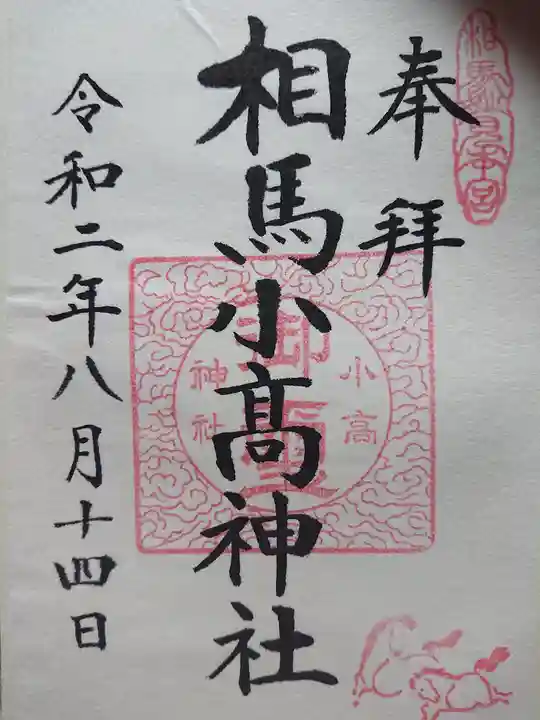 奉拝
相馬小髙神社
令和二年八月十四日
小高
神社